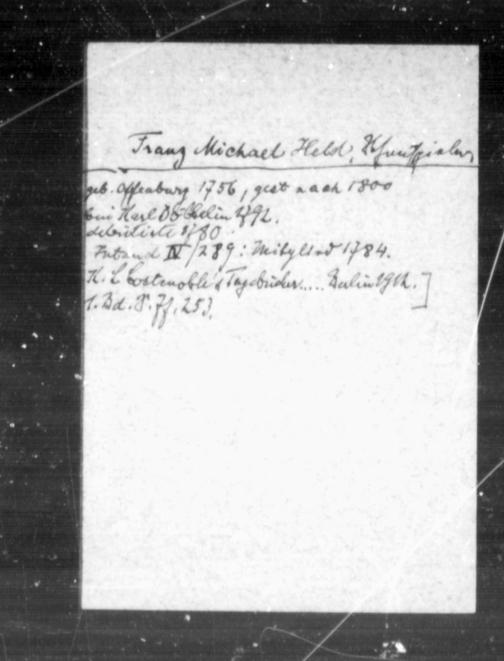 Franz Michael Held, Schauspieler
geb. Offenburg 1756, gest nach 1800
bei Karl Döbbelin 1792.
debütierte 1780
IV/289: Mitglied 1784.
K. L Costenoble's Tagebücher.... Berlin 1912.]
1. Bd. S. 7f, 253.